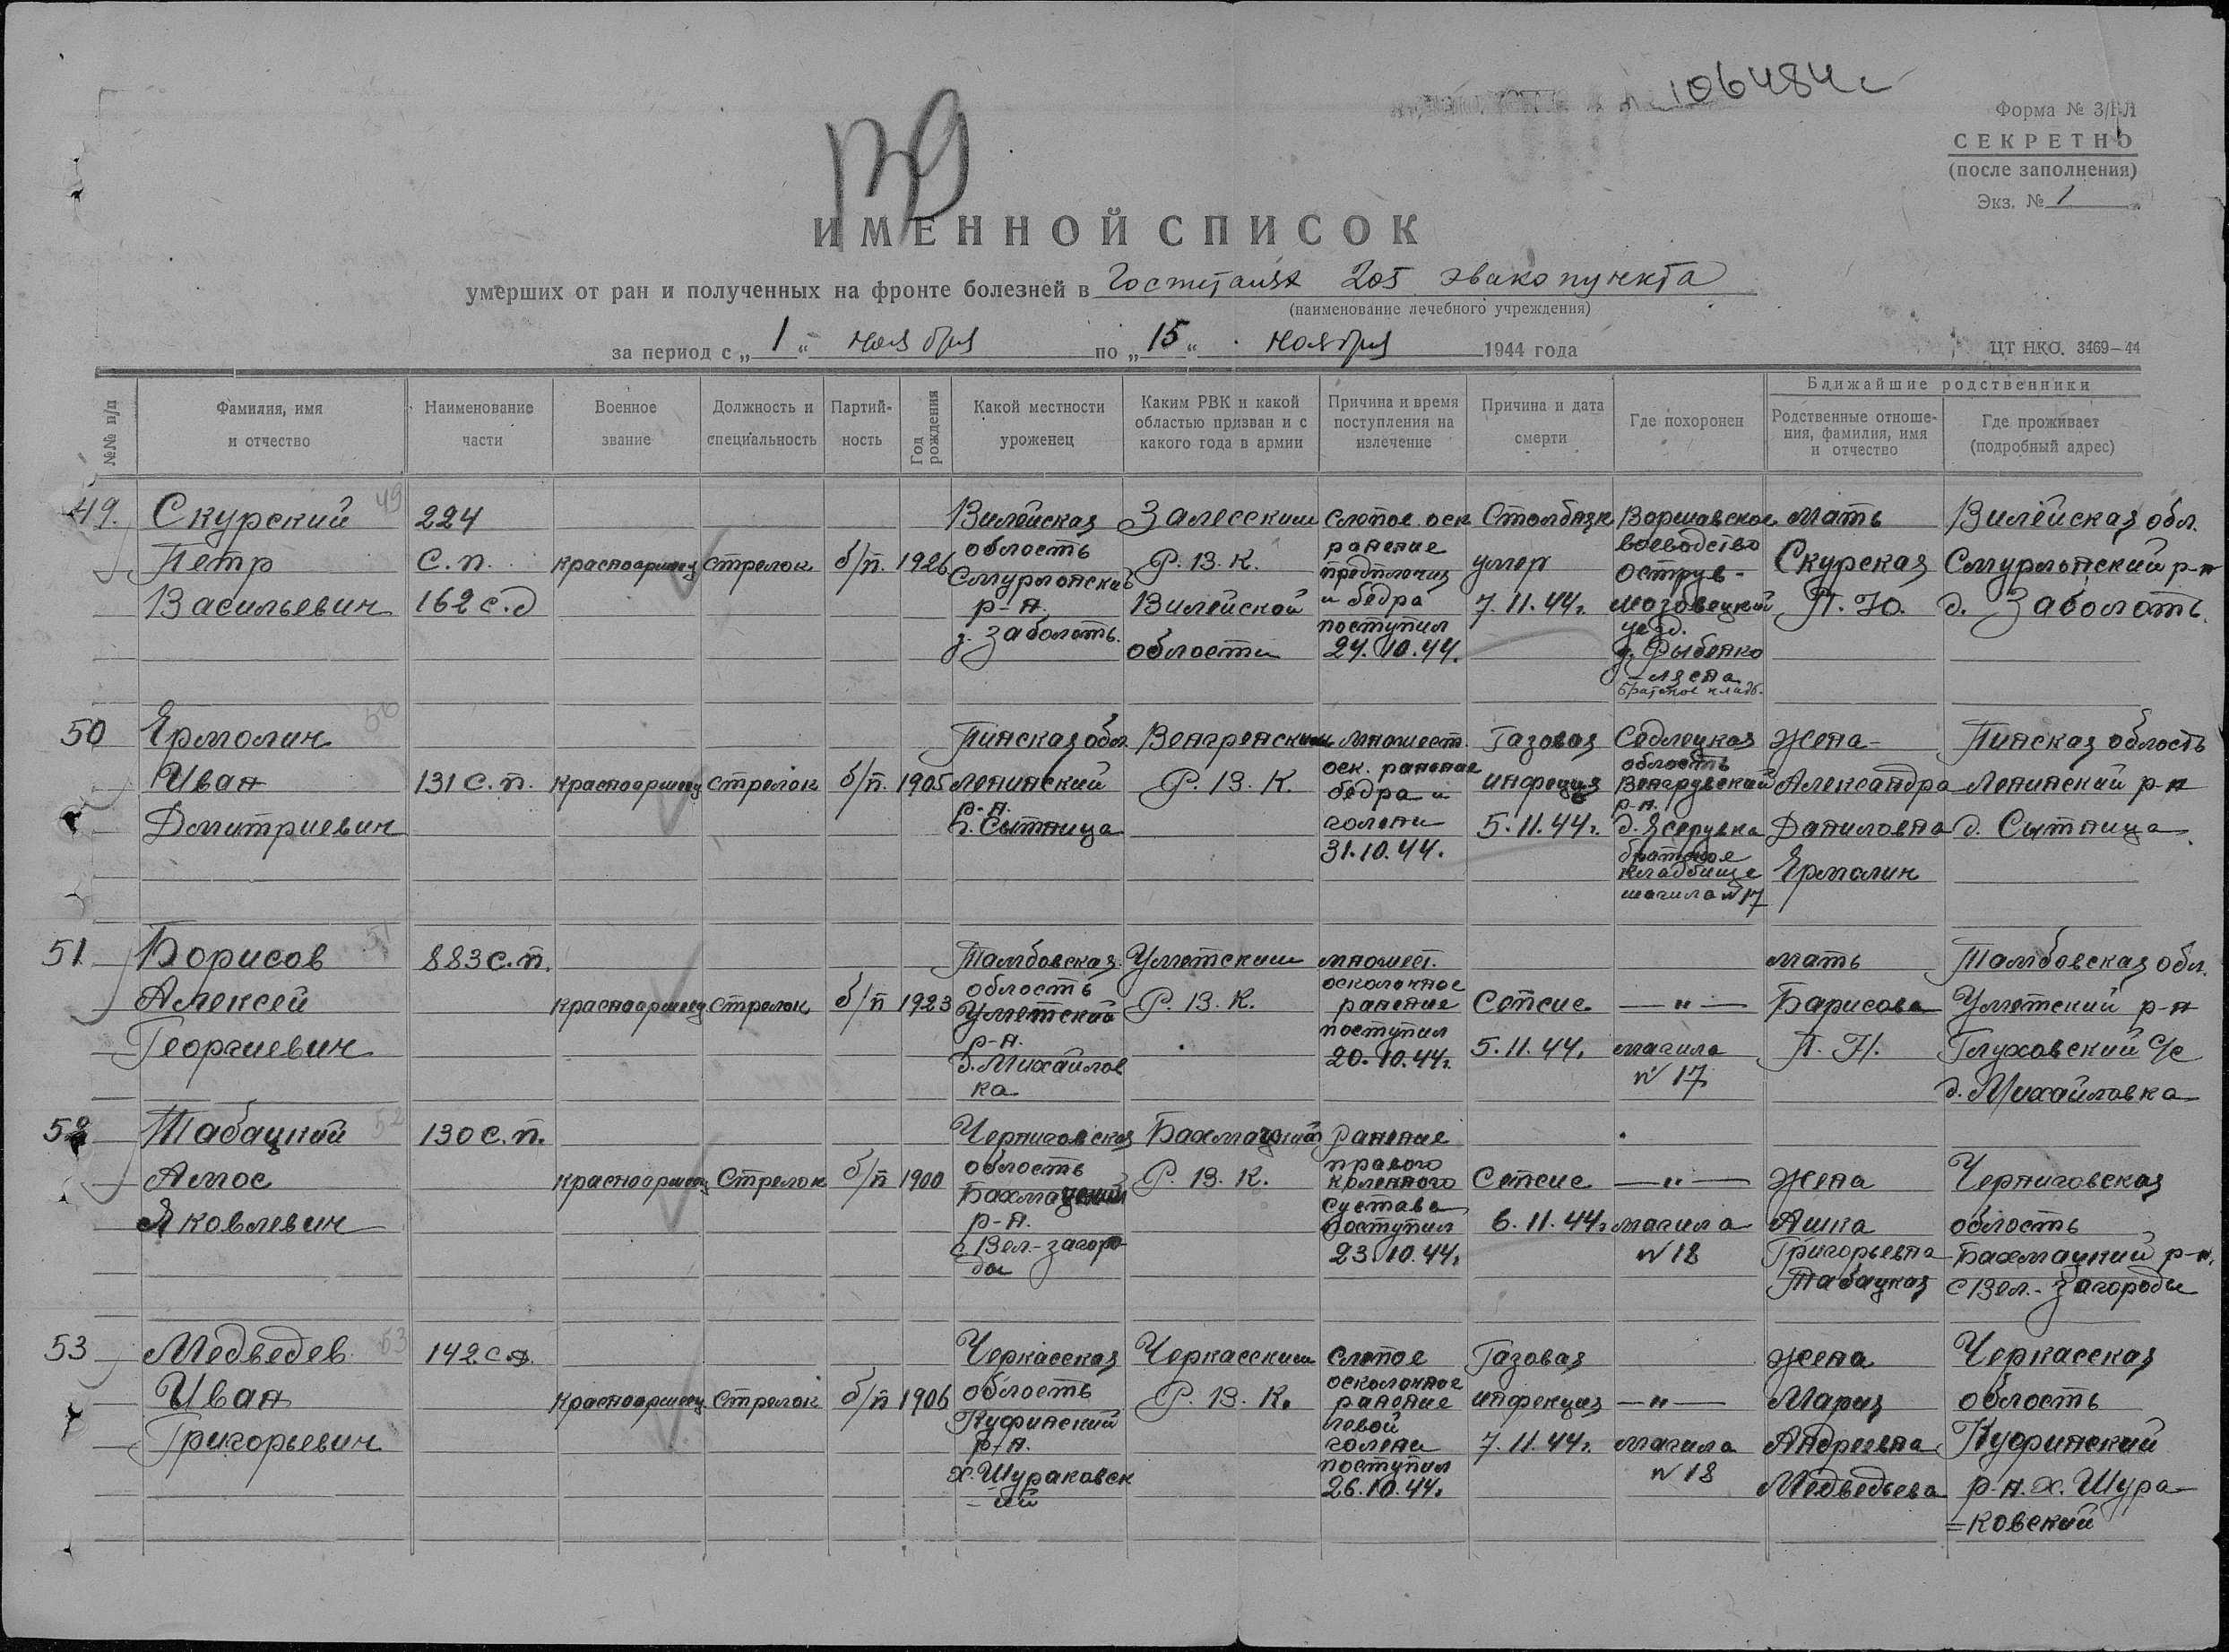 106484с
Форма № 3/ГЛ
СЕКРЕТНО
(после заполнения)
Экз. № 1
ИМЕННОЙ СПИСОК
умерших от ран и полученных на фронте болезней в Госпиталях 205 эвакопункта
(наименование лечебного учреждения)
за период с „ 1 “ ноября по „ 15 “ ноября 1944 года
ЦТ НКО. 3469—44
№№ п/п
Фамилия, имя
и отчество
Наименование
части
Военное
звание
Должность и
специальность
Партий-
ность
Год
рождения
Какой местности
уроженец
Каким РВК и какой
областью призван и с
какого года в армии
Причина и время
поступления на
излечение
Причина и дата
смерти
Где похоронен
Ближайшие родственники
Родственные отноше-
ния, фамилия, имя
и отчество
Где проживает
(подробный адрес)
49.
Скурский
Петр
Васильевич
49
224
с.п.
162 с.д
красноармеец
стрелок
б/п.
1926
Вилейская
область
Смурлонский
р-н.
д. Заболоть.
Залесским
Р.В.К.
Вилейской
области
Слепое оск
ранение
предплечия
и бедра
поступил
24.10.44.
Столбняк
умер
7.11.44г.
Варшавское
воеводство
Острув-
мазовецкий
уезд.
д. Рыбенко
-лясна
братское кладб.
Мать
Скурская
П.Ю.
Вилейская обл.
Смурлонский р-н
д. Заболоть.
50
Ермолич
Иван
Дмитриевич
50
131 с.п.
красноармеец
стрелок
б/п.
1905
Пинская обл.
Ленинский
р-н.
д. Сытница
Венгренским
Р.В.К.
множест.
оск. ранение
бедра и
голени
31.10.44.
Газовая
инфекция
5.11.44г.
Седлецкая
область
Венгрувский
р-н.
д. Ясерувка
братское
кладбище
могила №17
Жена-
Александра
Даниловна
Ермолич
Пинская область
Ленинский р-н
д. Сытница
51
Борисов
Алексей
Георгиевич
51
883 с.п.
красноармеец
стрелок
б/п
1923
Тамбовская
область
Уметский
р-н.
д. Михайлов
ка
Уметским
Р.В.К.
множест.
осколочное
ранение
поступил
20.10.44г.
Сепсис
5.11.44.
— " —
могила
№ 17
мать
Барисова
П.Н.
Тамбовская обл.
Уметский р-н
Глуховский с/с
д. Михайловка
52
Табацкий
Амос
Яковлевич
52
130 с.п.
красноармеец
Стрелок
б/п
1900
Черниговская
область
Бахмацкий
р-н.
с. Вел.-Загоро
ды
Бахмацкий
Р.В.К.
Ранение
правого
коленного
сустава
поступил
23.10.44.
Сепсис
6.11.44г.
— " —
могила
№ 18
Жена
Анна
Григорьевна
Табацкая
Черниговская
область
Бахмацкий р-н.
с Вел.-Загороды
53
Медведев
Иван
Григорьевич
53
142 с.п.
красноармеец
Стрелок
б/п
1906
Черкасская
область
Куфинский
р-н.
х. Шураковск
-ий
Черкасским
Р.В.К.
Слепое
осколочное
ранение
левой
голени
поступил
26.10.44.
Газовая
инфекция
7.11.44г.
— " —
могила
№ 18
Жена
Мария
Андреевна
Медведьева
Черкасская
область
Куфинский
р-н. х. Шура-
=ковский